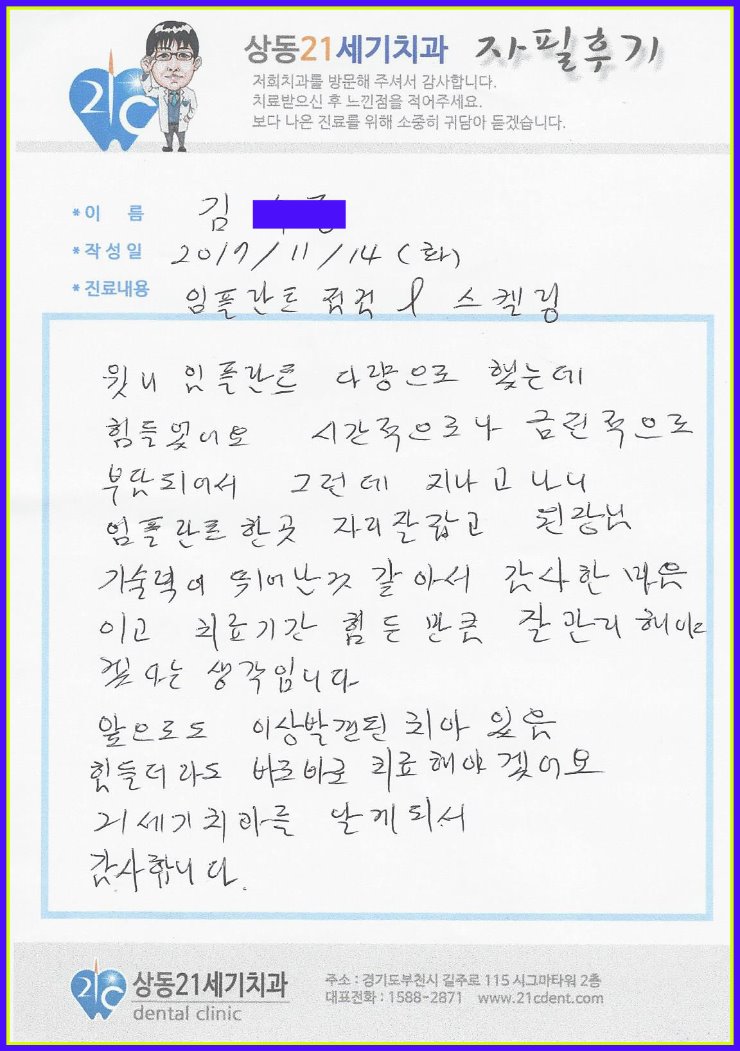 상동21세기치과 자필후기
저희치과를 방문해 주셔서 감사합니다.
치료받으신 후 느낀점을 적어주세요.
보다 나은 진료를 위해 소중히 귀담아 듣겠습니다.
21C
*이 름 김
*작성일 2017/11/14(화)
*진료내용 임플란트 점검 & 스켈링
윗니 임플란트 다량으로 했는데
힘들었어요 시간적으로나 금전적으로
부담되어서 그런데 지나고 나니
임플란트한곳 자리잘잡고 원장님
기술력이 뛰어난것 같아서 감사한 마음
이고 치료기간 힘든 만큼 잘관리 해야
겠다는 생각입니다
앞으로도 이상발견된 치아 있음
힘들더라도 바로바로 치료해야 겠어요
21세기치과를 알게되서
감사합니다.
21C 상동21세기치과
dental clinic
주소 : 경기도부천시 길주로 115 시그마타워 2층
대표전화 : 1588-2871 www.21cdent.com